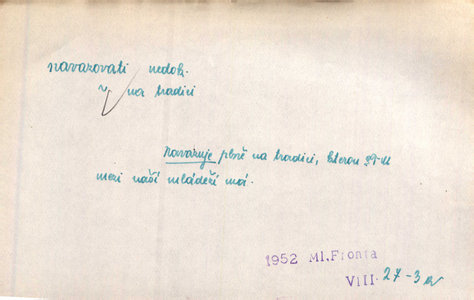 navazovati nedok.
n. na tradici
Navazuje plně na tradici, kterou
mezi naší mládeží má.
1952 Ml.Fronta
VIII. 27-3